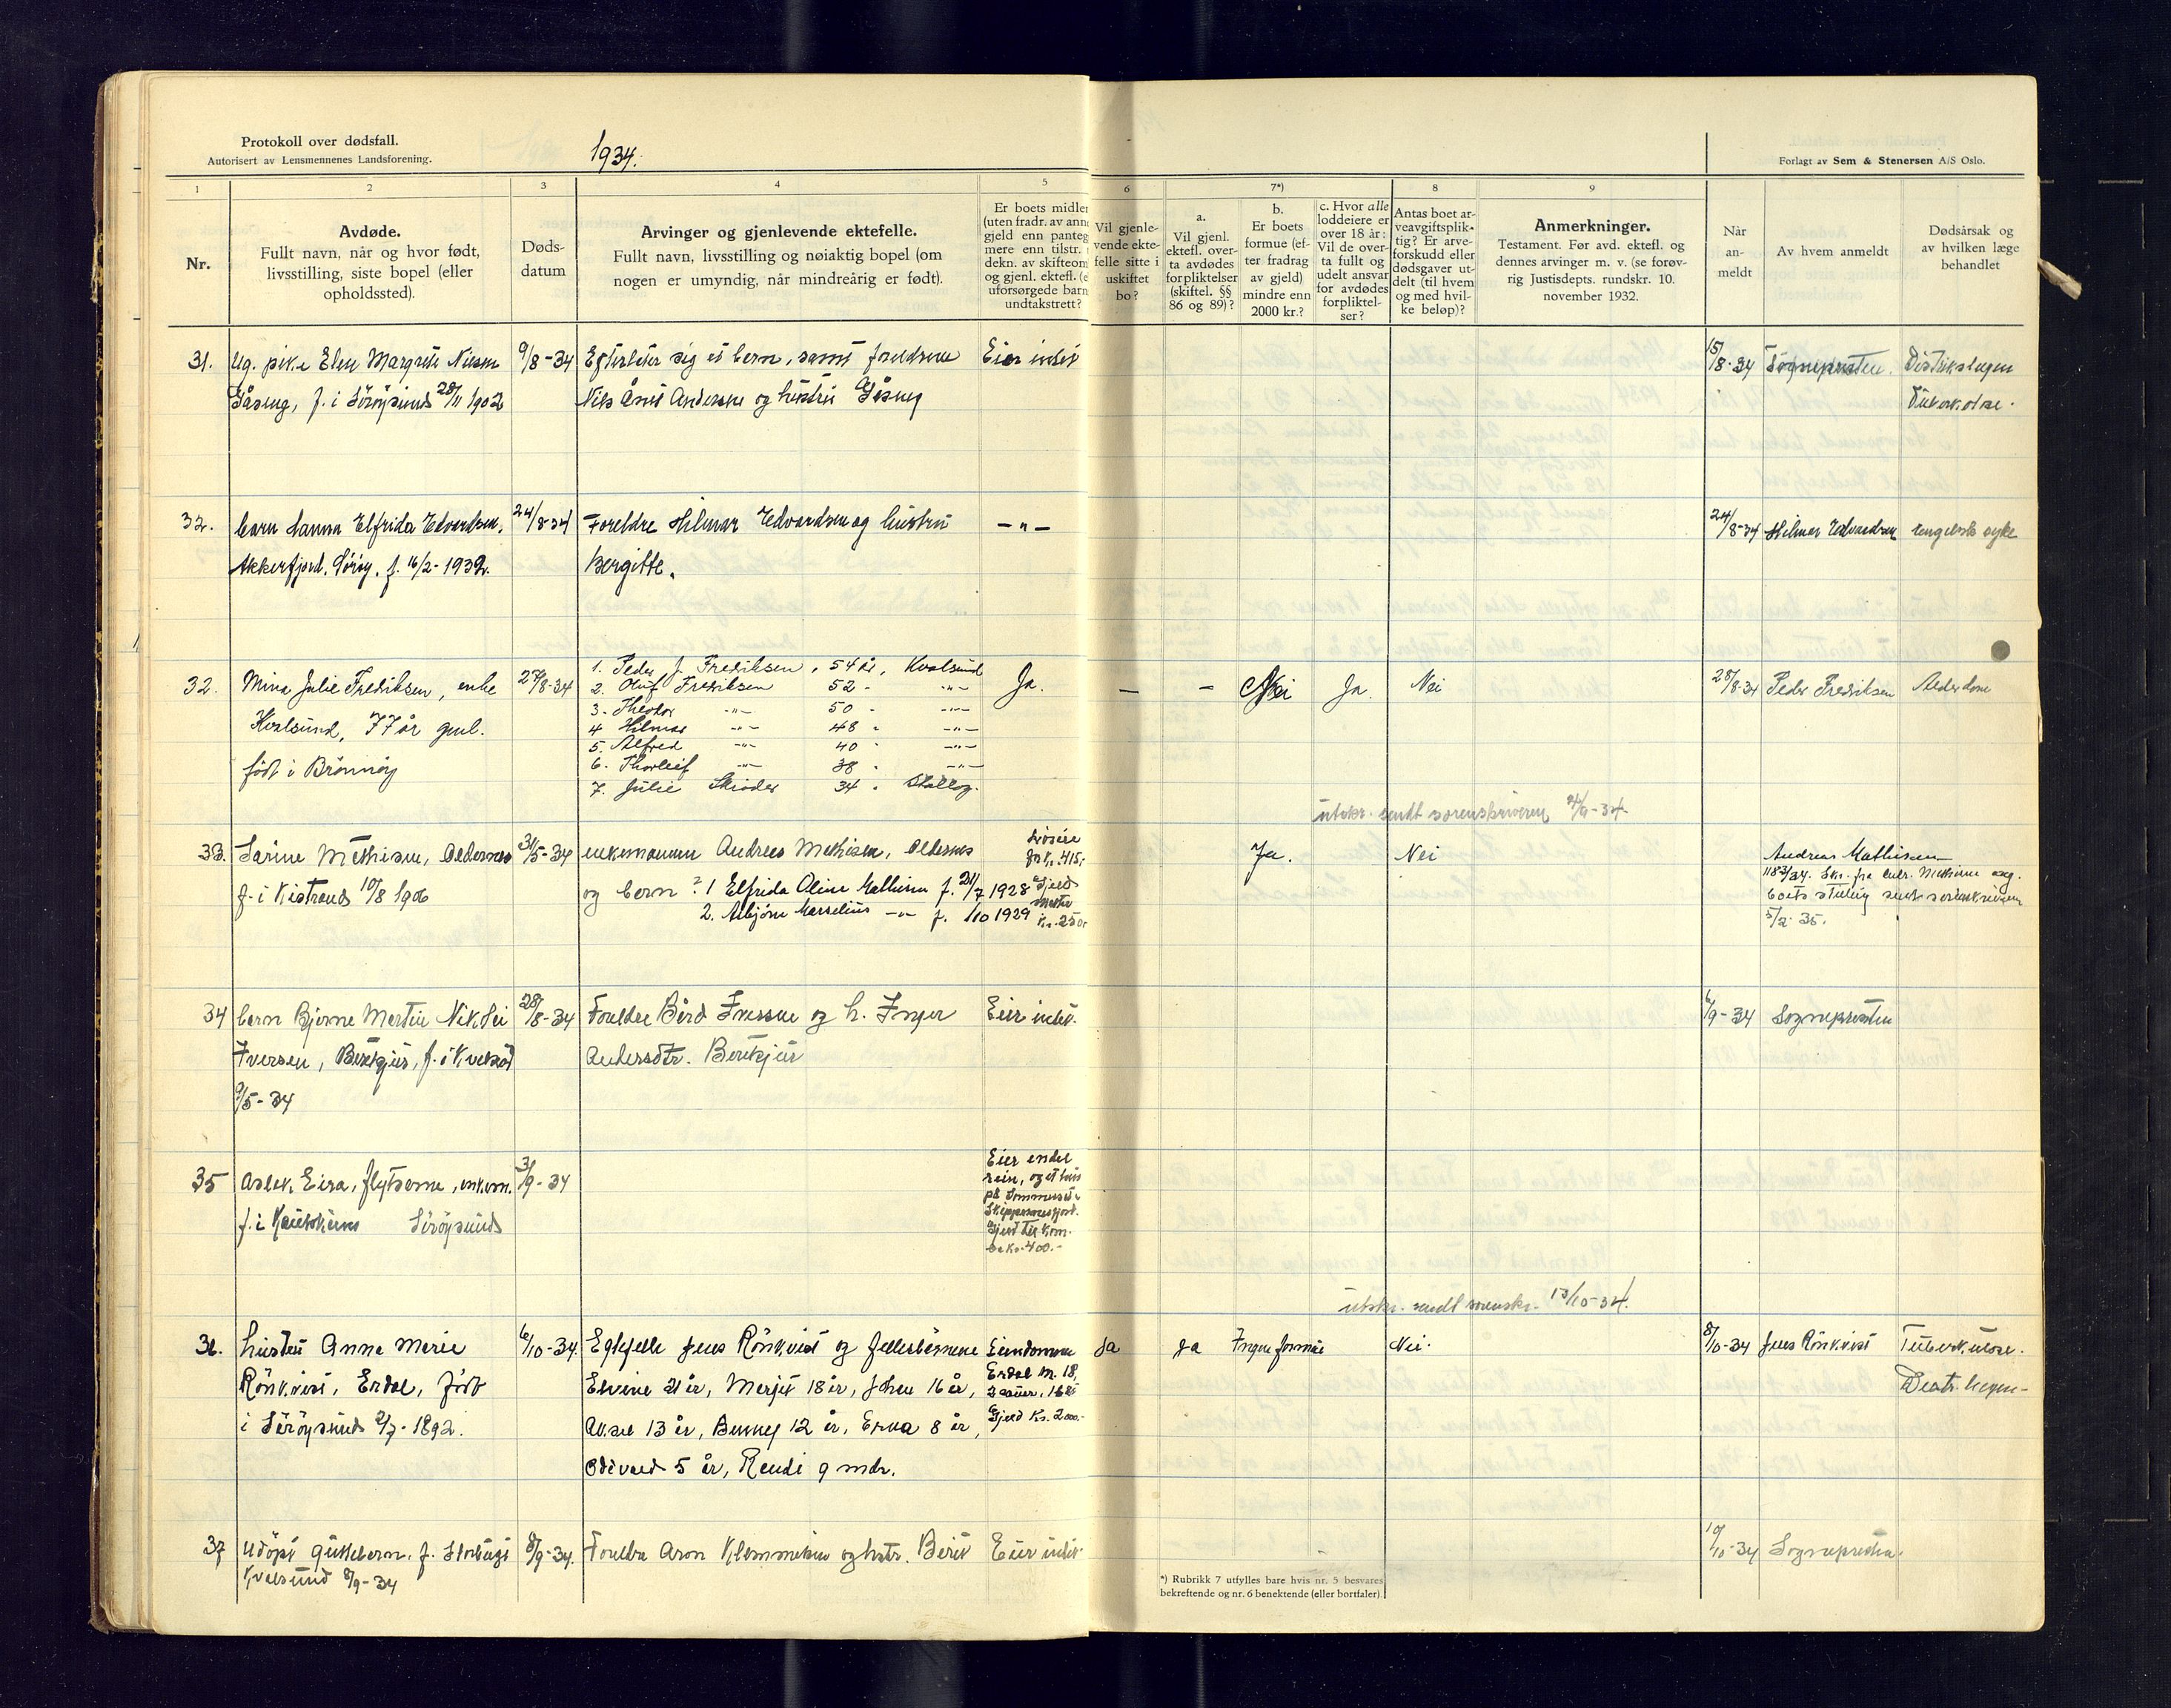 Protokoll over dødsfall.
Autorisert av Lensmennenes Landsforening.
1934.
Forlagt av Sem & Stenersen A/S Oslo.
1 2 3 4 5 6 7*) 8 9
Nr.
Avdøde.
Fullt navn, når og hvor født,
livsstilling, siste bopel (eller
opholdssted).
Døds-
datum
Arvinger og gjenlevende ektefelle.
Fullt navn, livsstilling og nøiaktig bopel (om
nogen er umyndig, når mindreårig er født).
Er boets midler
(uten fradr. av ann
gjeld enn panteg
mere enn tilstr.
dekn. av skifteom
og gjenl. ektefl. (e
uforsørgede barn
undtakstrett?
Vil gjenle-
vende ekte-
felle sitte i
uskiftet
bo?
a.
Vil gjenl.
ektefl. over-
ta avdødes
forpliktelser
(skiftel. §§
86 og 89)?
b.
Er boets
formue (ef-
ter fradrag
av gjeld)
mindre enn
2000 kr.?
c. Hvor alle
loddeiere er
over 18 år:
Vil de over-
ta fullt og
udelt ansvar
for avdødes
forpliktel-
ser?
Antas boet ar-
veavgiftsplik-
tig? Er arve-
forskudd eller
dødsgaver ut-
delt (til hvem
og med hvil-
ke beløp)?
Anmerkninger.
Testament. Før avd. ektefl. og
dennes arvinger m. v. (se forøv-
rig Justisdepts. rundskr. 10.
november 1932.
Når
an-
meldt
Av hvem anmeldt
Dødsårsak og
av hvilken læge
behandlet
31. Ug. pike Elen Margrete Nilsen 9/8-34 Efterlater sig et barn, samt foreldrene Eier intet 15/8-34 Sognepresten. Distriktslægen
f. i Söröysund 28/11 1902 Nils Anderssen og hustru Tuberkolose.
32. barn Elfrida Edvardsen, 24/8-34 Foreldre Hilmar Edvardsen og hustru -"- 24/8-34 Hilmar Edvardsen engelsk syke
Akkerfjord, Söröy, f. 16/2-1932. Bergitte.
32. Mina Julie Fredriksen, enke 27/8-34 1. Peder J. Fredriksen, 54 år, Kvalsund Ja. - - Nei Ja. Nei 28/8-34 Peder Fredriksen Alderdom
2. Oluf Fredriksen 52 - -"-
3. Theodor -"- 50 - -"-
Kvalsund, 77 år gml. 4 Hilmar -"- 48 - -"-
5. Alfred -"- 40 - -"-
født i Brönnöy 6. Thorleif -"- 38 - -"-
7. Julie 34 -
utskr. sendt sorenskriveren 4/9-34
33. Sarine Mathisen, Oldernes 31/5-34 enkemannen Andreas Mathisen, Oldernes Lösöre Ja. Nei Andreas Mathisen
for kr. 415,-
f. i Kistrand 10/8 1906 og barn: 1 Elfrida Oline Mathisen f. 21/7 1928 Gjeld
2. Asbjörn Marselius -"- f. 1/10 1929 kr. 250.
boets stilling sendt sorenskriveren
5/2 35.
34 barn Bjarne Martin Nikolai 28/8-34 Foreldre Iversen og h. Inger Eier intet. 6/9-34 Sognepresten
Iversen, f. i Kvalsund Andersdtr.
9/5-34
35 Aslek Eira, flytsame, enkem. 3/9-34 Eier endel
rein, og et hus
på Sommerset i
Skippernesfjord.
f. i Kautokeino Söröysund Gjeld til kom.
kr. 400.-
utskr. sendt sorenskr. 13/10-34.
36. hustru Anna Marie 6/10-34. Egtefelle Jens Rönkvist og fellesbarnene Eiendommen Ja Ja Ingen formue Nei. 8/10-34 Jens Rönkvist Tuberkulose.
Rönkvist, Erdal, født Elvine 21 år, Marjit 18 år, Johan 16 år, Erdal m. 18, Distr. lægen-
i Söröysund 2/7-1892. Aksel 13 år, Benny 12 år, Erna 8 år, Gjeld Kr. 2000.-
Odvald 5 år, Randi 9 mdr.
37 Udöpt guttebarn, f. 8/9-34. Foreldre Aron Klemmetsen og hstr. Berit Eier intet 10/10-34 Sognepresten.
Kvalsund 8/9-34
*) Rubrikk 7 utfylles bare hvis nr. 5 besvares
bekreftende og nr. 6 benektende (eller bortfaler).